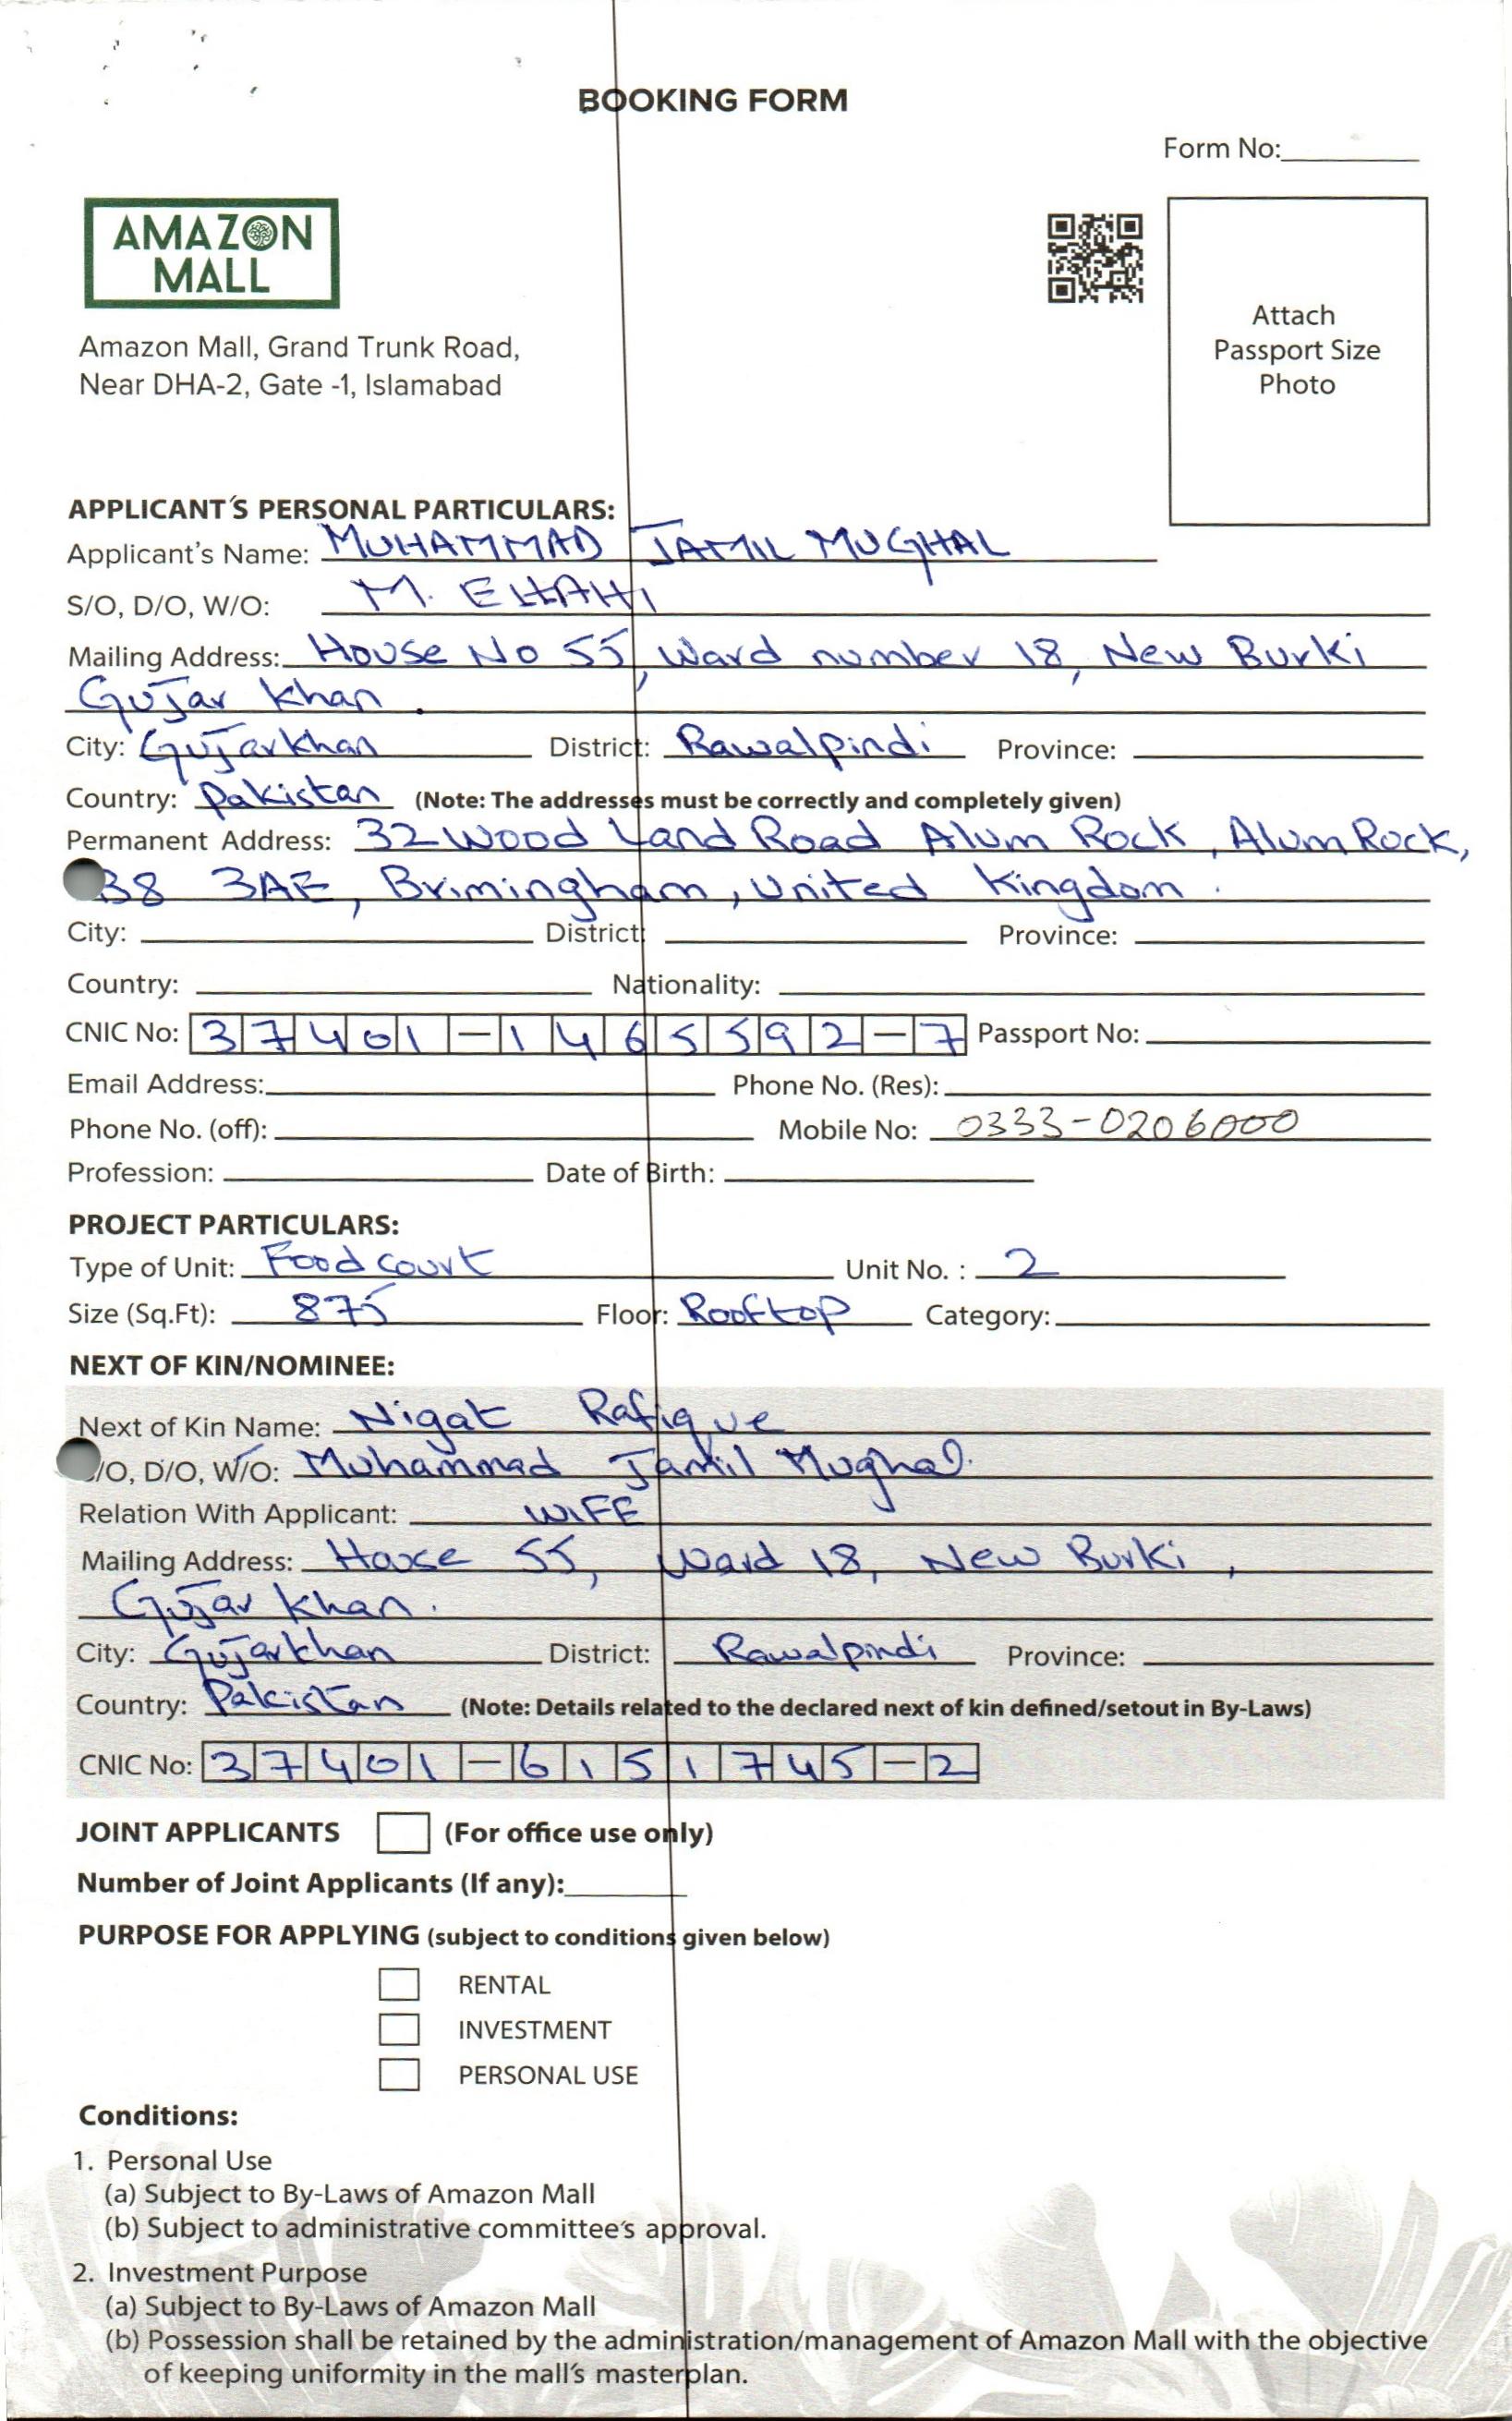 BOOKING FORM
Form No:
AMAZON
MALL
Attach
Passport Size
Photo
Amazon Mall, Grand Trunk Road,
Near DHA-2, Gate -1, Islamabad
APPLICANT'S PERSONAL PARTICULARS:
Applicant's Name: MUHAMMAD JAMIL MUGHAL
S/O, D/O, W/O: M. ELHAHI
Mailing Address: House No 55, Ward number 18, New Burki
Gujar Khan.
City: Gujarkhan District: Rawalpindi Province:
Country: Pakistan (Note: The addresses must be correctly and completely given)
Permanent Address: 32 Wood Land Road Alum Rock, Alum Rock,
B8 3AE, Brimingham, United Kingdom.
City: District: Province:
Country: Nationality:
CNIC No: 37401-1465592-7 Passport No:
Email Address: Phone No. (Res):
Phone No. (off): Mobile No: 0333-0206000
Profession: Date of Birth:
PROJECT PARTICULARS:
Type of Unit: Food court Unit No. : 2
Size (Sq.Ft): 875 Floor: Rooftop Category:
NEXT OF KIN/NOMINEE:
Next of Kin Name: Nigat Rafique
/O, D/O, W/O: Muhammad Jamil Mughal.
Relation With Applicant: WIFE
Mailing Address: House 55, Ward 18, New Burki,
Gujar Khan.
City: Gujarkhan District: Rawalpindi Province:
Country: Pakistan (Note: Details related to the declared next of kin defined/setout in By-Laws)
CNIC No: 37401-6151745-2
JOINT APPLICANTS (For office use only)
Number of Joint Applicants (If any):
PURPOSE FOR APPLYING (subject to conditions given below)
RENTAL
INVESTMENT
PERSONAL USE
Conditions:
1. Personal Use
(a) Subject to By-Laws of Amazon Mall
(b) Subject to administrative committee's approval.
2. Investment Purpose
(a) Subject to By-Laws of Amazon Mall
(b) Possession shall be retained by the administration/management of Amazon Mall with the objective
of keeping uniformity in the mall's masterplan.